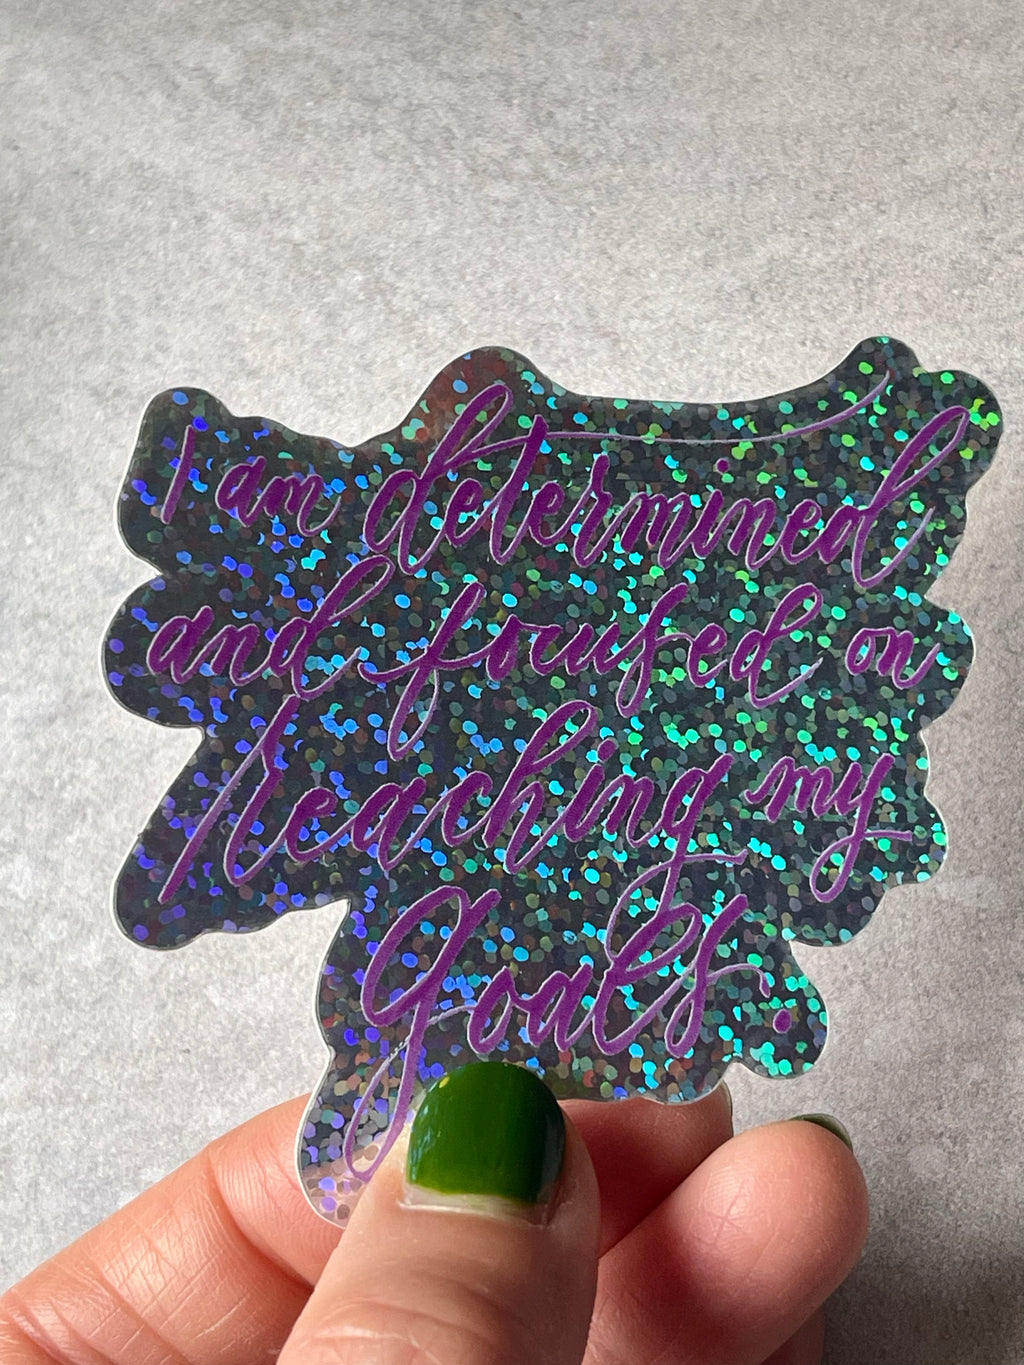 I am determined
and focused on
reaching my
goals.